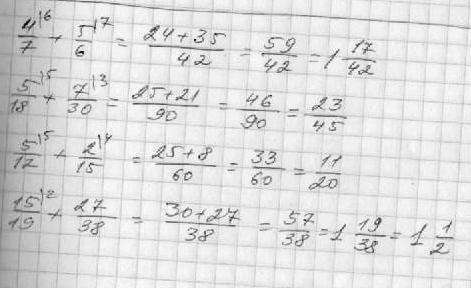 4/7|6 + 5/6|7 = 24+35/42 = 59/42 = 1 17/42
5/18|5 + 7/30|3 = 25+21/90 = 46/90 = 23/45
5/12|5 + 2/15|4 = 25+8/60 = 33/60 = 11/20
15/19|2 + 27/38 = 30+27/38 = 57/38 = 1 19/38 = 1 1/2